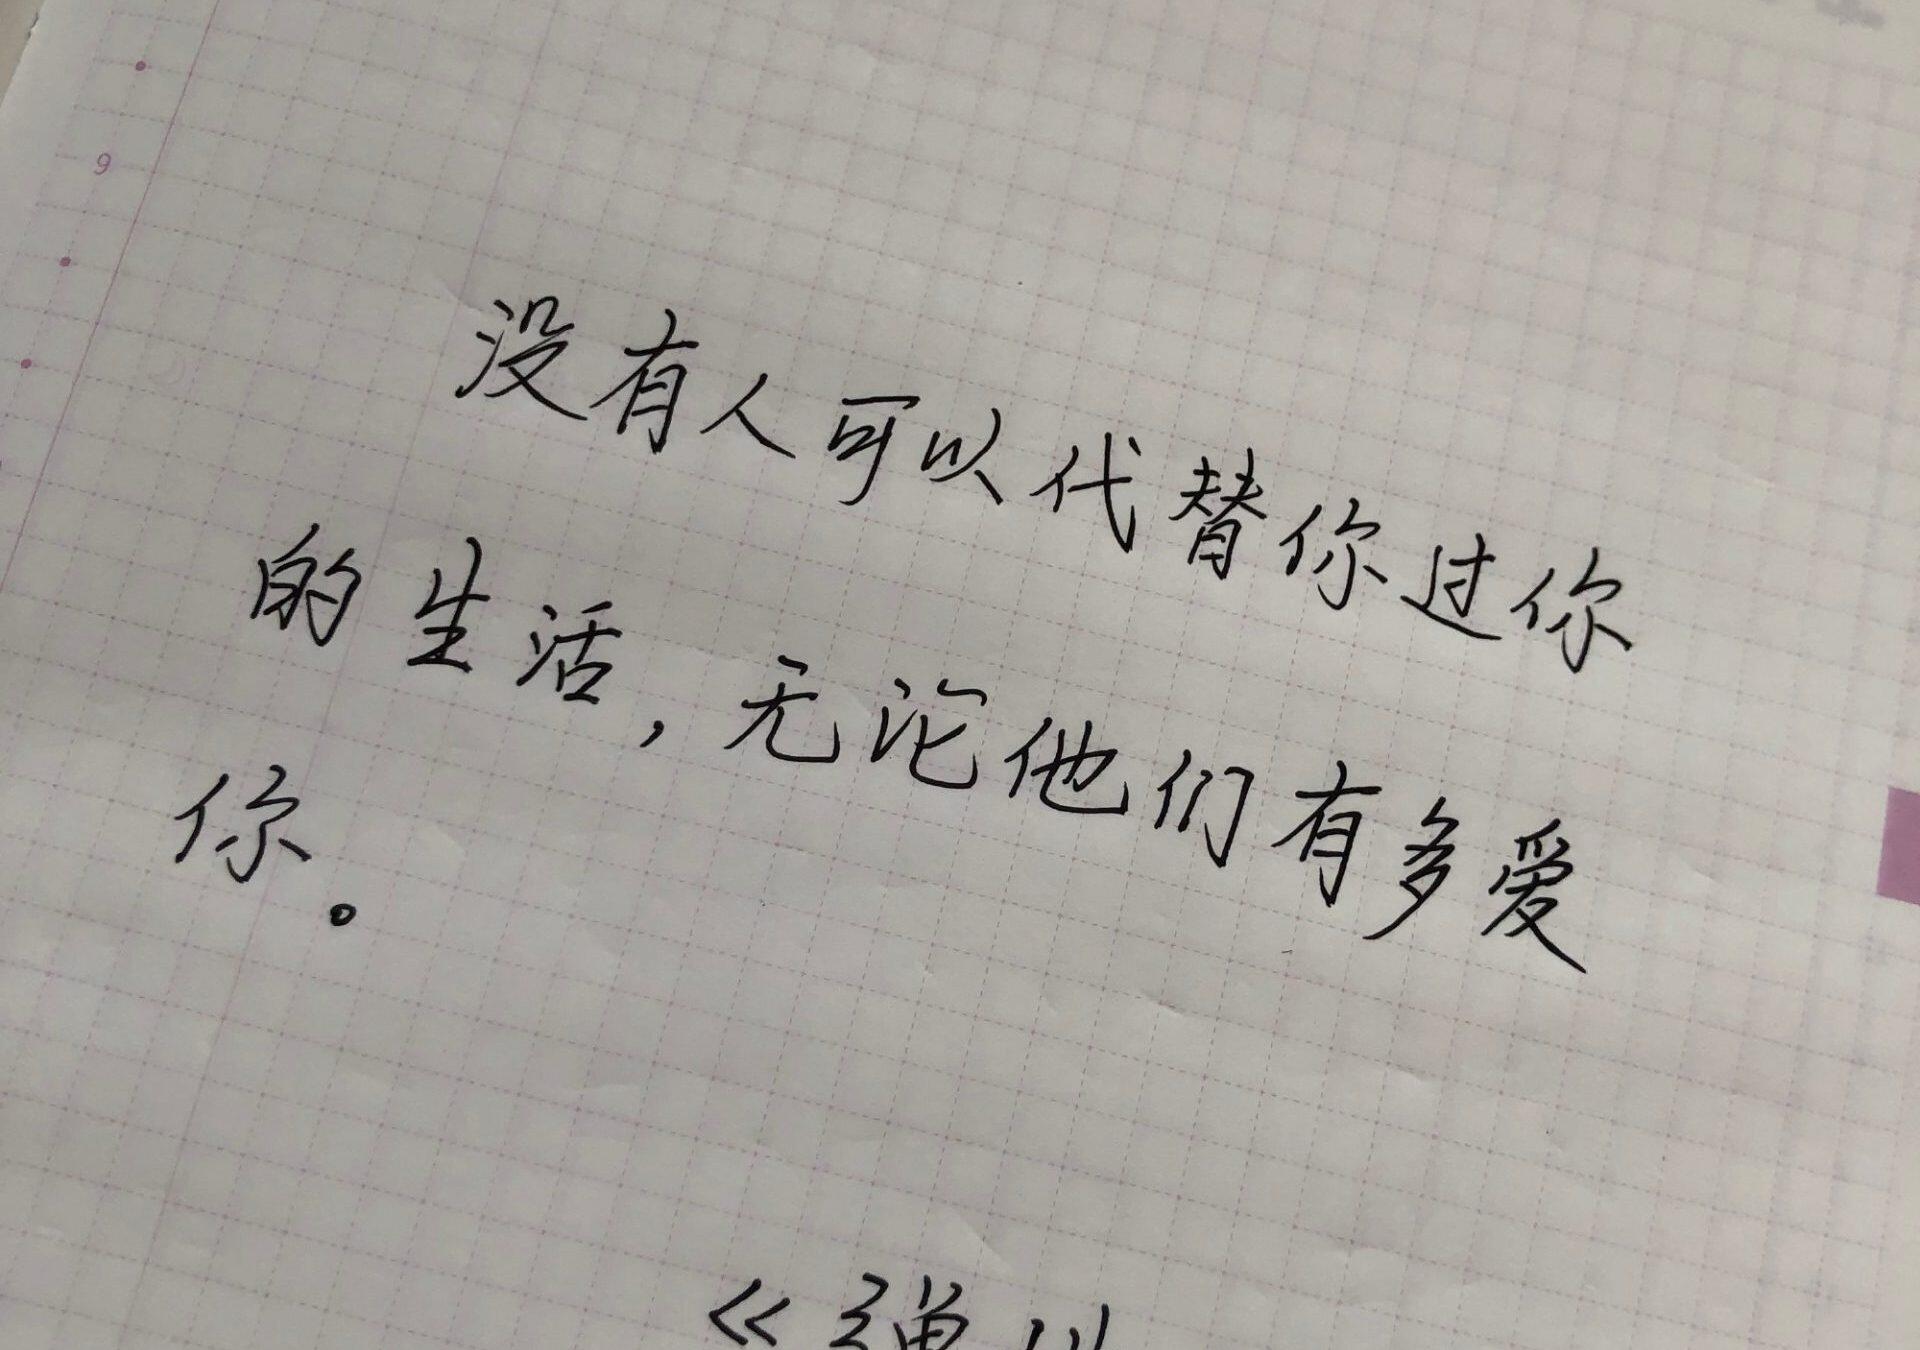 9
没有人可以代替你过你
的生活，无论他们有多爱
你。
《弹